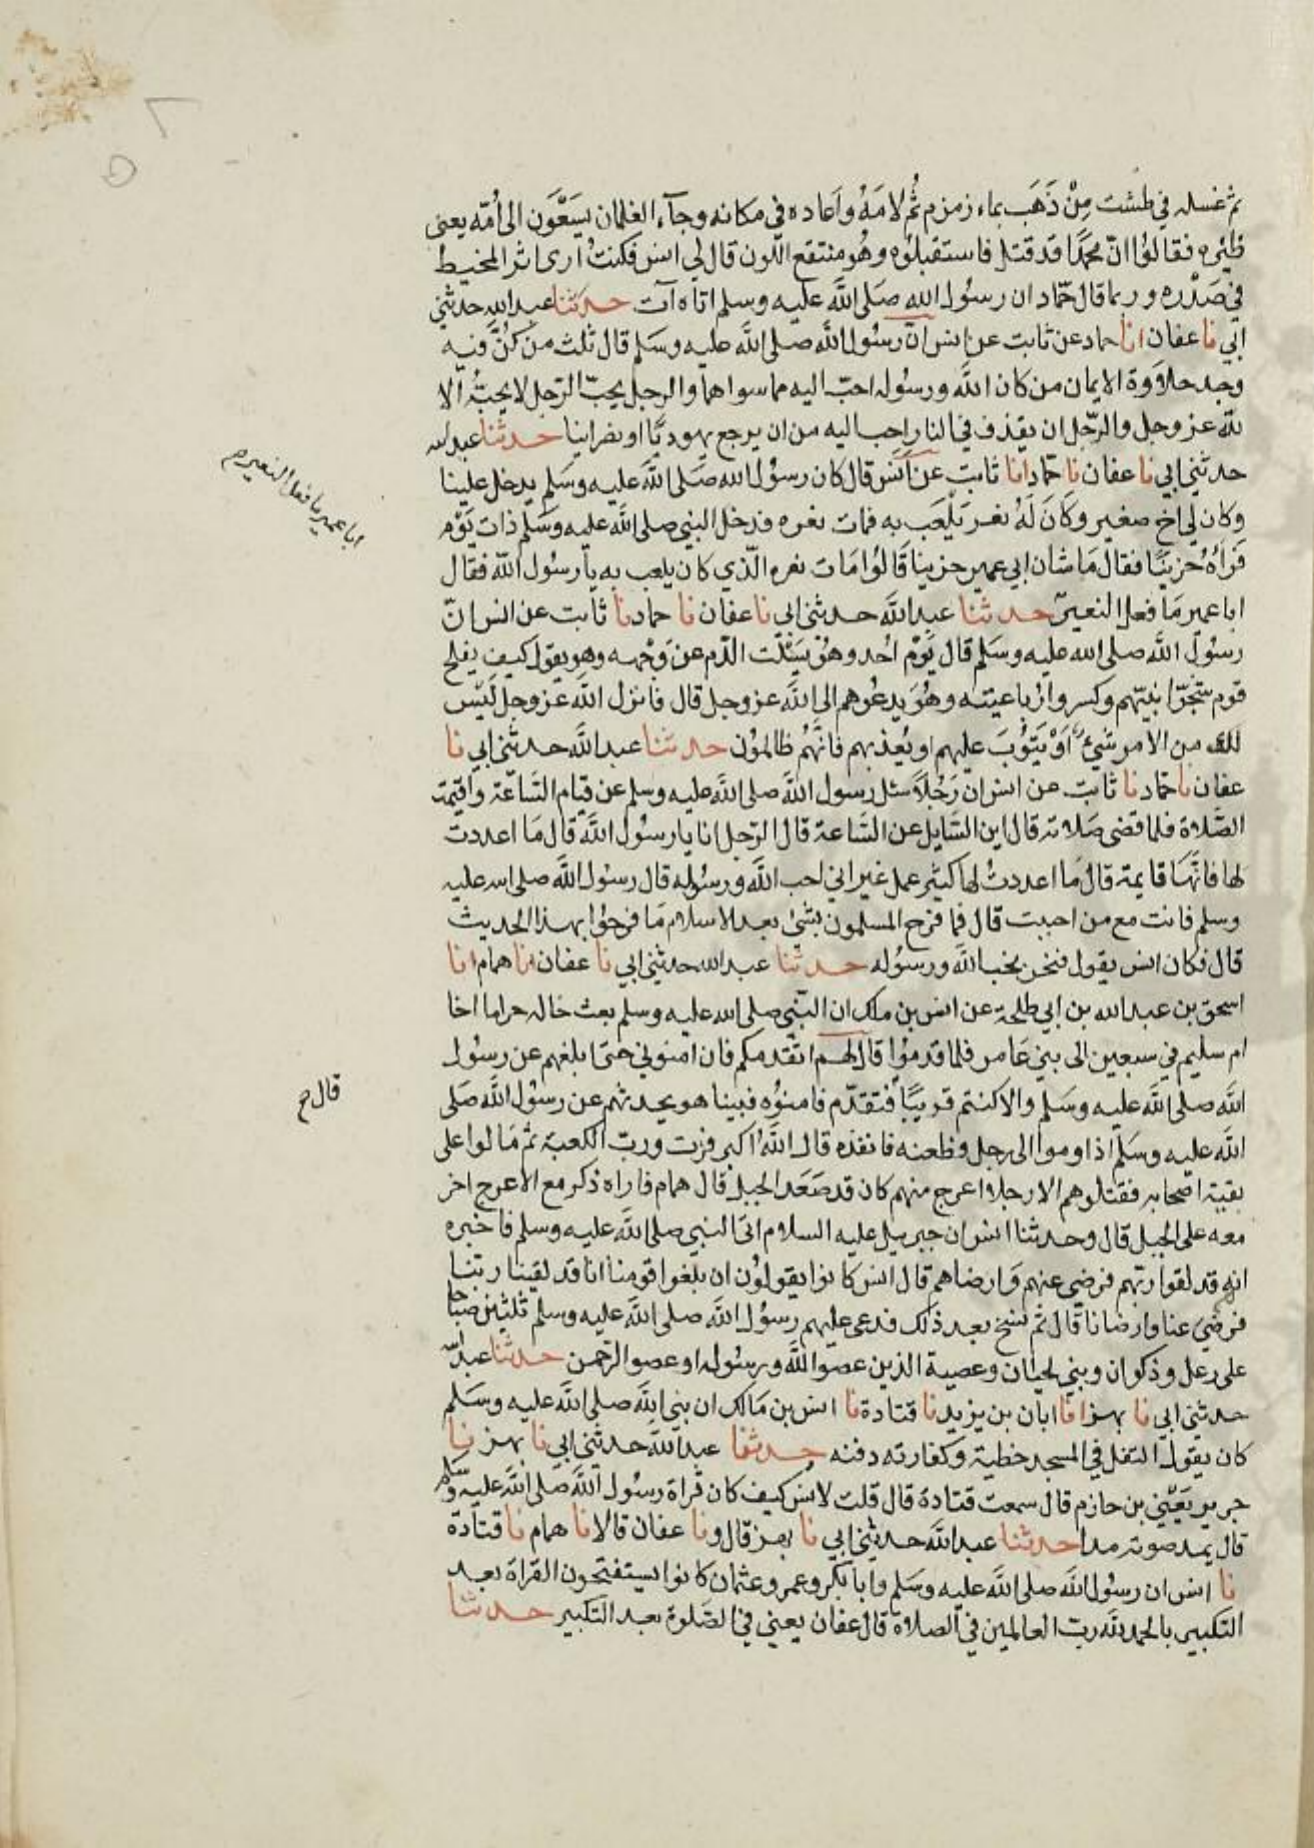 ثم غسله في طشت مِنْ ذَهَب بماء زمزم ثُم لامَهُ واَعاده في مكانه وجآء الغلمان يسَعَّون الى اُمّه يعنى
ظئره فقالوُا انّ محمدًا قد قتل فاستقبلوُه وهُو منتقع اللّون قال لي انس فكنتُ ارى اثر المخيط
في صَدْره وربما قال حمّاد ان رسوُل الله صَلى اللَّه عليه وسلم اتاه آت حدثنا عبد الله حدثني
ابي نا عفان انا حماد عن ثابت عن انس ان رسُول اللَّه صلى اللَّه عليه وسَلم قال ثلث من كُنَّ فيه
وجد حلاوة الايمان من كان اللَّه ورسوُله احبّ اليه مما سواهما والرجل يحبّ الرّجل لا يحبّهُ الا
للّه عز وجل والرّجل ان يقذف في النار احب اليه من ان يرجع يهوديًّا او نصرانيا حدثنا عبد الله
حدثني ابي نا عفان نا حمّاد انا ثابت عن اَنَس قال كان رسوُل الله صَلى اللَّه عليه وسَلم يدخل علينا
وكان لي اخ صغير وكَانَ لَهُ نغر يَلْعَب به فمات نغره فدخل النبي صلى اللَّه عليه وسَلم ذات يَوْم
فَرَاهُ حُزينًا فقال مَا شان ابي عمير حزينا قَالوُا مَات نغره الّذي كان يلعب به يا رسُول اللّه فقال
ابا عمير مَا فعل النغير حدثنا عبد اللَّه حدثني ابي نا عفان نا حماد نا ثابت عن انس انّ
رسُول اللَّه صلى الله عليه وسَلم قال يَوْم اُحد وهُوَ يَسْلُت الدّم عن وَجْهه وهو يقول كيف يفلح
قوم شجّوا نبيّهم وكسروا رباعيته وهُوَ يدعُوهم الى اللَّه عز وجل قال فانزل اللَّه عَز وجل لَيْس
لك من الامر شيءٌ اَوْ يَتوُبَ عليهم او يُعذبهم فانَّهُمْ ظالموُن حدثنا عبد اللَّه حدثني ابي نا
عفان نا حمّاد نا ثابت عن انس ان رَجُلاً سئل رسول اللَّه صلى اللَّه عليه وسلم عن قيام السَّاعَة واقيمت
الصَّلاة فلما قضى صَلاته قال اين السَّايل عن السَّاعة قال الرّجل انا يا رسُول اللَّه قال مَا اعددت
لها فانَّهَا قايمة قال مَا اعددتُ لها كثير عمل غير اني احب اللَّه ورسوُله قال رسوُل اللَّه صلى الله عليه
وسلم فانت مع من احببت قال فما فرح المسلمون بشئ بعد الاسلام مَا فرحوُا بهذا الحديث
قال فكان انس يقول فنحن نحب اللَّه ورسوُله حدثنا عبد الله حدثني ابي نا عفان نا همام انا
اسحق بن عبد الله بن ابي طلحة عن انس بن ملك ان النّبي صلى الله عليه وسلم بعث خاله حراما اخا
ام سليم في سبعين الى بني عَامر فلما قدموُا قال لهم اتقدمكم فان امنوني حتى ابلغهم عن رسوُل
اللَّه صلى اللَّه عليه وسَلم والا كنتم قريبًا فتقدّم فامنوُه فبينا هو يحدثهم عن رسوُل اللَّه صَلى
اللَّه عليه وسَلم اذ اوموا الى رجل وطعنه فانفذه قال اللَّه اكبر فزت وربّ الكعبة ثم مَالوا على
بقية اصحابه فقتلوهم الا رجلا اعرج منهم كان قد صَعَد الجبل قال همام فاراه ذكر مع الاعرج اخر
معه على الجبل قال وحدثنا انس ان جبريل عليه السلام اتى النبي صلى اللَّه عليه وسلم فاخبره
انهم قد لقوا ربّهم فرضي عنهم وَارضاهم قال انس كانوا يقولوُن ان بلغوا قومنا انا قد لقينا ربّنا
فرضيَ عنا وارضانا قال ثم نسخ بعد ذلك فدعى عليهم رسوُل اللَّه صلى اللَّه عليه وسلم ثلثين صباحا
على رعل وذكوان وبني لحيان وعصية الذين عصوا اللَّه ورسُوله او عصوا الرّحمن حدثنا عبد اللّه
حدثني ابي نا بهز انا ابان بن يزيد نا قتادة نا انس بن مَالك ان نبي اللَّه صلى اللَّه عليه وسَلم
كان يقول التفل في المسجد خطية وكفارته دفنه حدثنا عبد اللَّه حدثني ابي نا بهز نا
جرير يَعْني بن حازم قال سمعت قتادة قال قلت لانس كيف كان قراة رسُول اللَّه صلى اللَّه عليه وسلم
قال يمد صوته مدا حدثنا عبد اللَّه حدثني ابي نا بهز قال ونا عفان قالا نا همام نا قتادة
نا انس ان رسوُل اللَّه صلى اللَّه عليه وسَلم وابا بكر وعمر وعثمان كانوا يستفتحون القراة بعد
التكبير بالحمد للَّه ربّ العالمين في الصلاة قال عفان يعني في الصَّلوة بعد التكبير حدثنا
ابا عمير ما فعل النغير م
قال ح